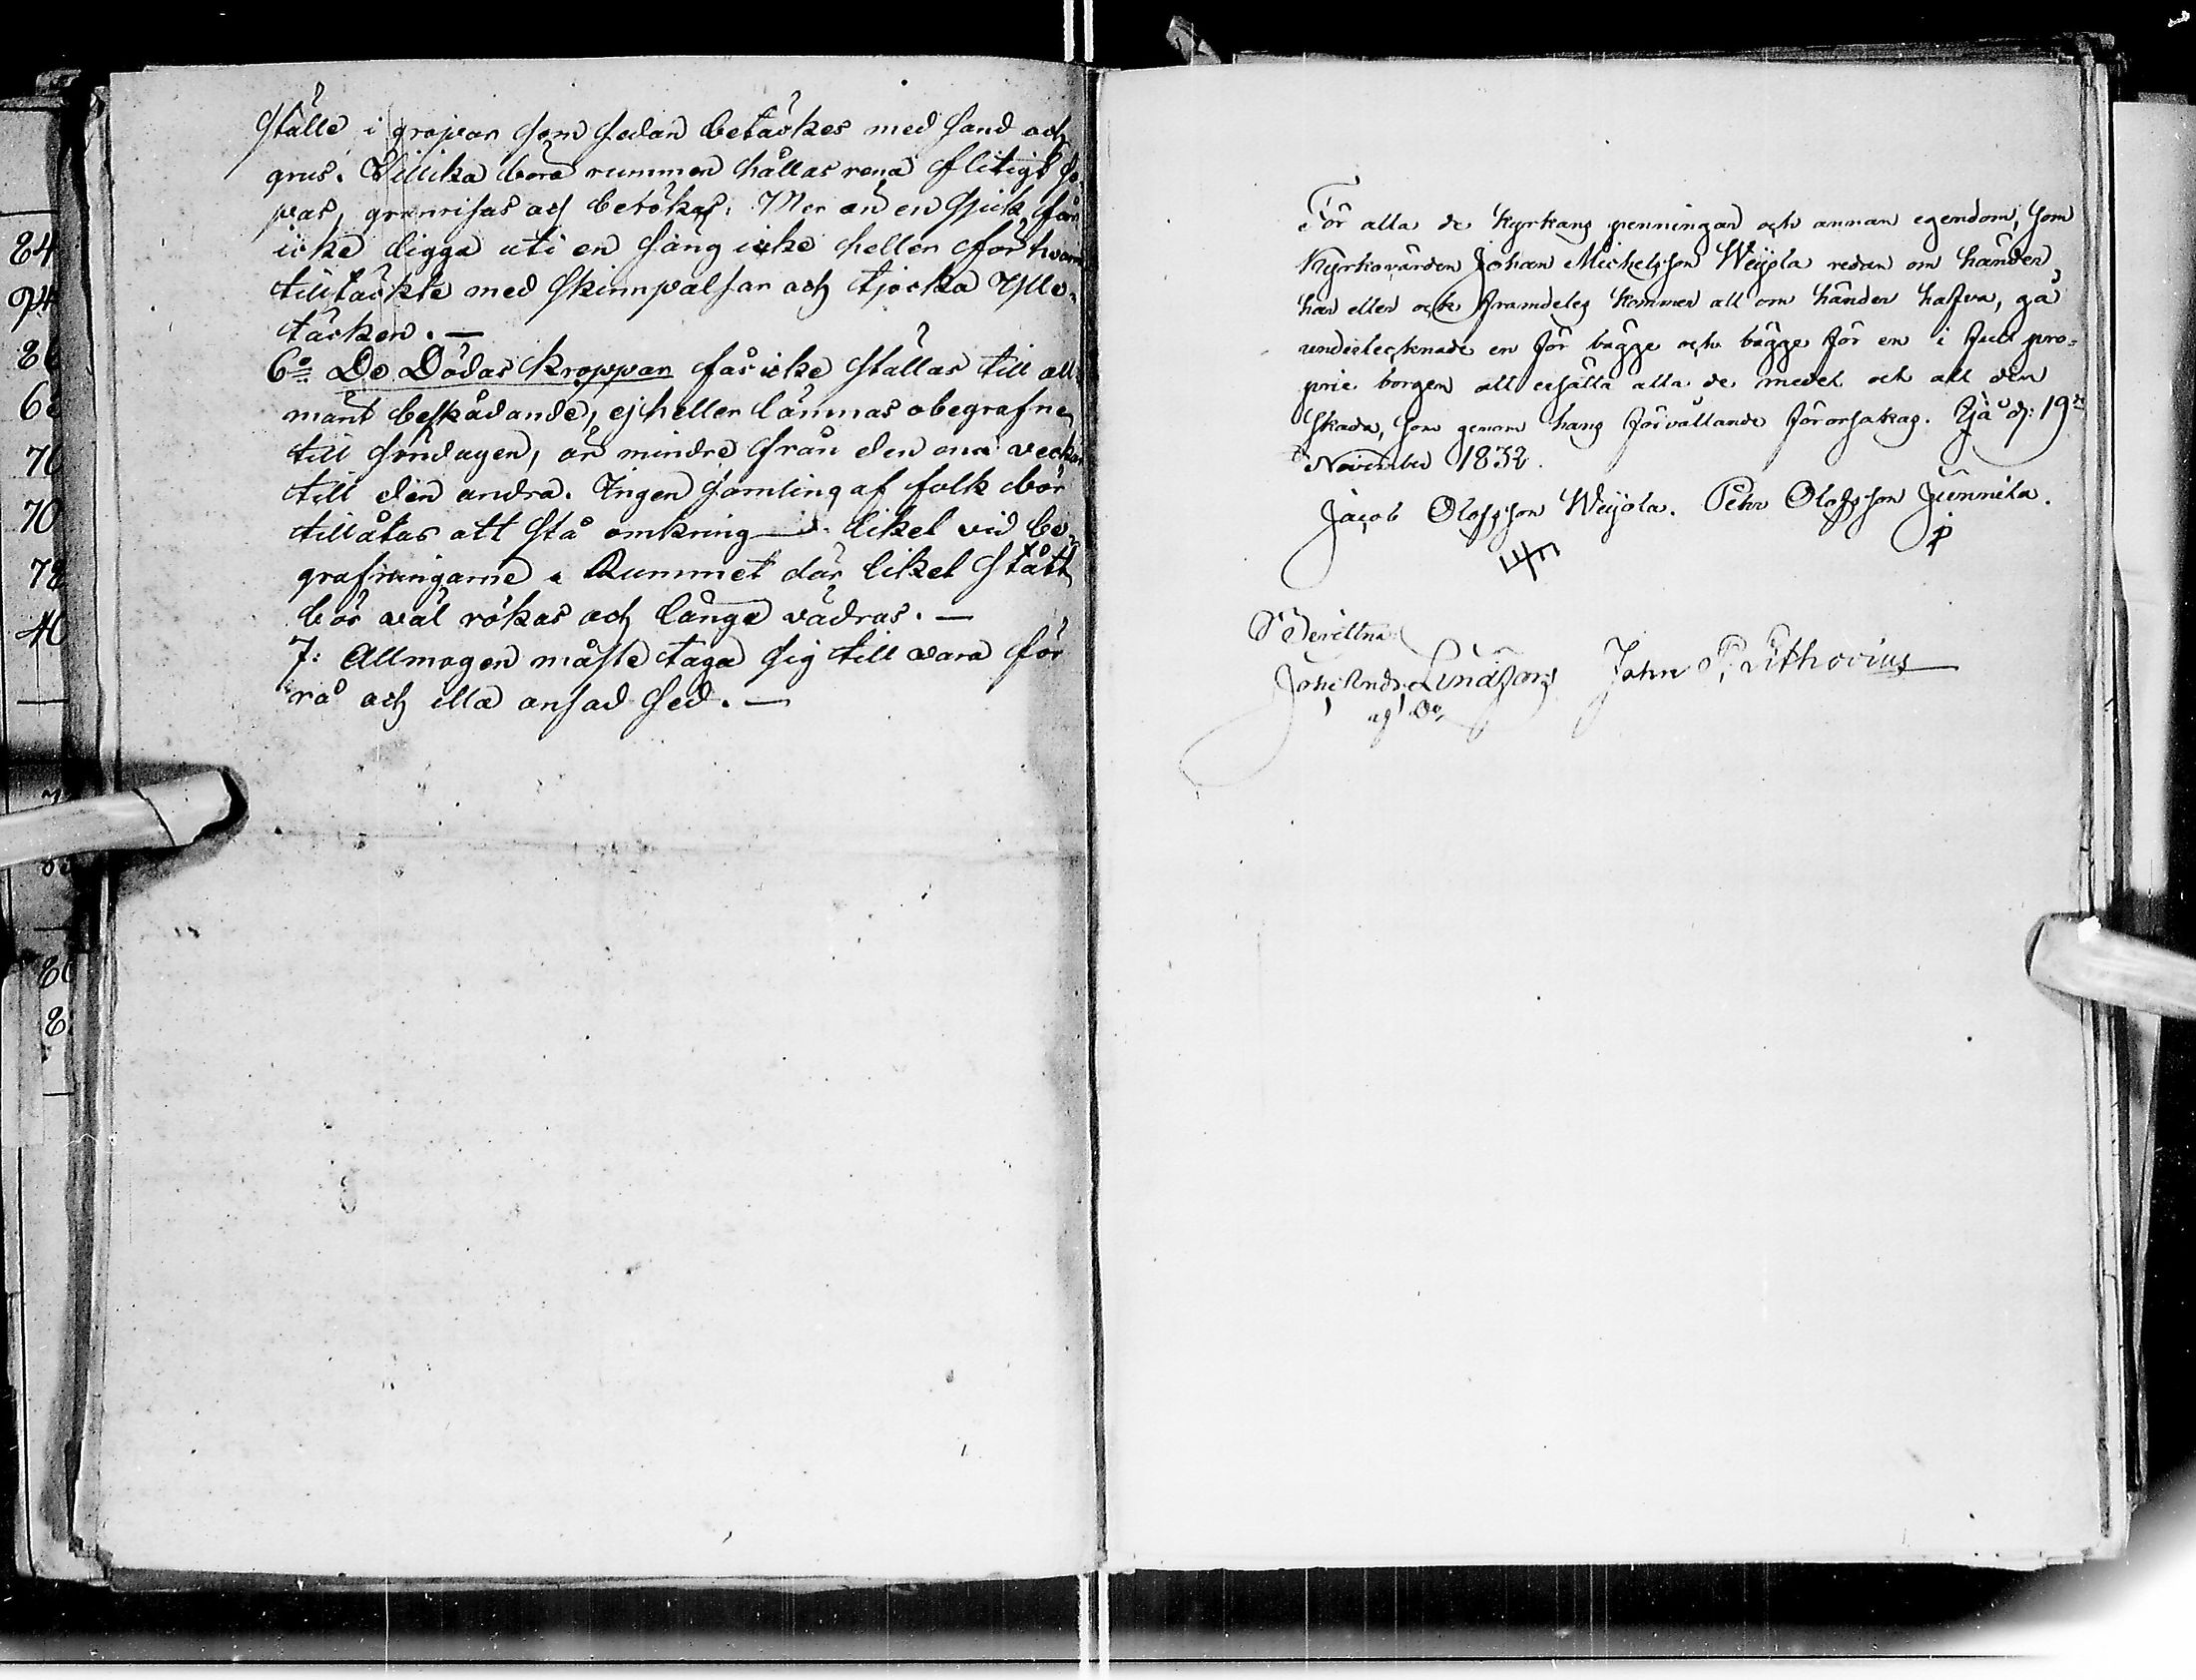 ställe i gropar som sedan betäckes med sand och
grus. Tillika böra rummen hållas rena flitigt so-
pas, granrisas och berökas. Mer än en sjuk får
icke ligga uti en säng icke heller för hvarm
tilltäckte med skinnpälsar och tjocka Ylle-
täcken. —
6:o De Dödas kroppar få icke ställas till all-
mänt beskådande, ej heller lämnas obegrafne
till söndagen, än mindre från den ena veckan
till den andra. Ingen samling af folk bör
tillåtas att stå omkring liket vid be-
grafningarne. Rummet där liket stått
bör väl rökas och länge vädras. —
7: Allmogen måste taga sig till vara för
rå och illa ansad säd. —
84
94
86
70
70
78
40
För alla de Kyrkans penningar och annan egendom, som
Kyrkovärden Johan Michelsson Weijola redan om händer
har eller och framdeles kommer att om händer hafva, gå
undertecknade en för bägge och bägge för en i full pro-
prie borgen att ersätta alla de medel och all den
skada, som genom hans förvållande förorsakas. Yjä d: 19de
November 1832.
Jacob Olofsson Weijola. Petter Olofsson Junnila.
Bevittna:
Joh: Andr: Lindfors John P. Lithovius